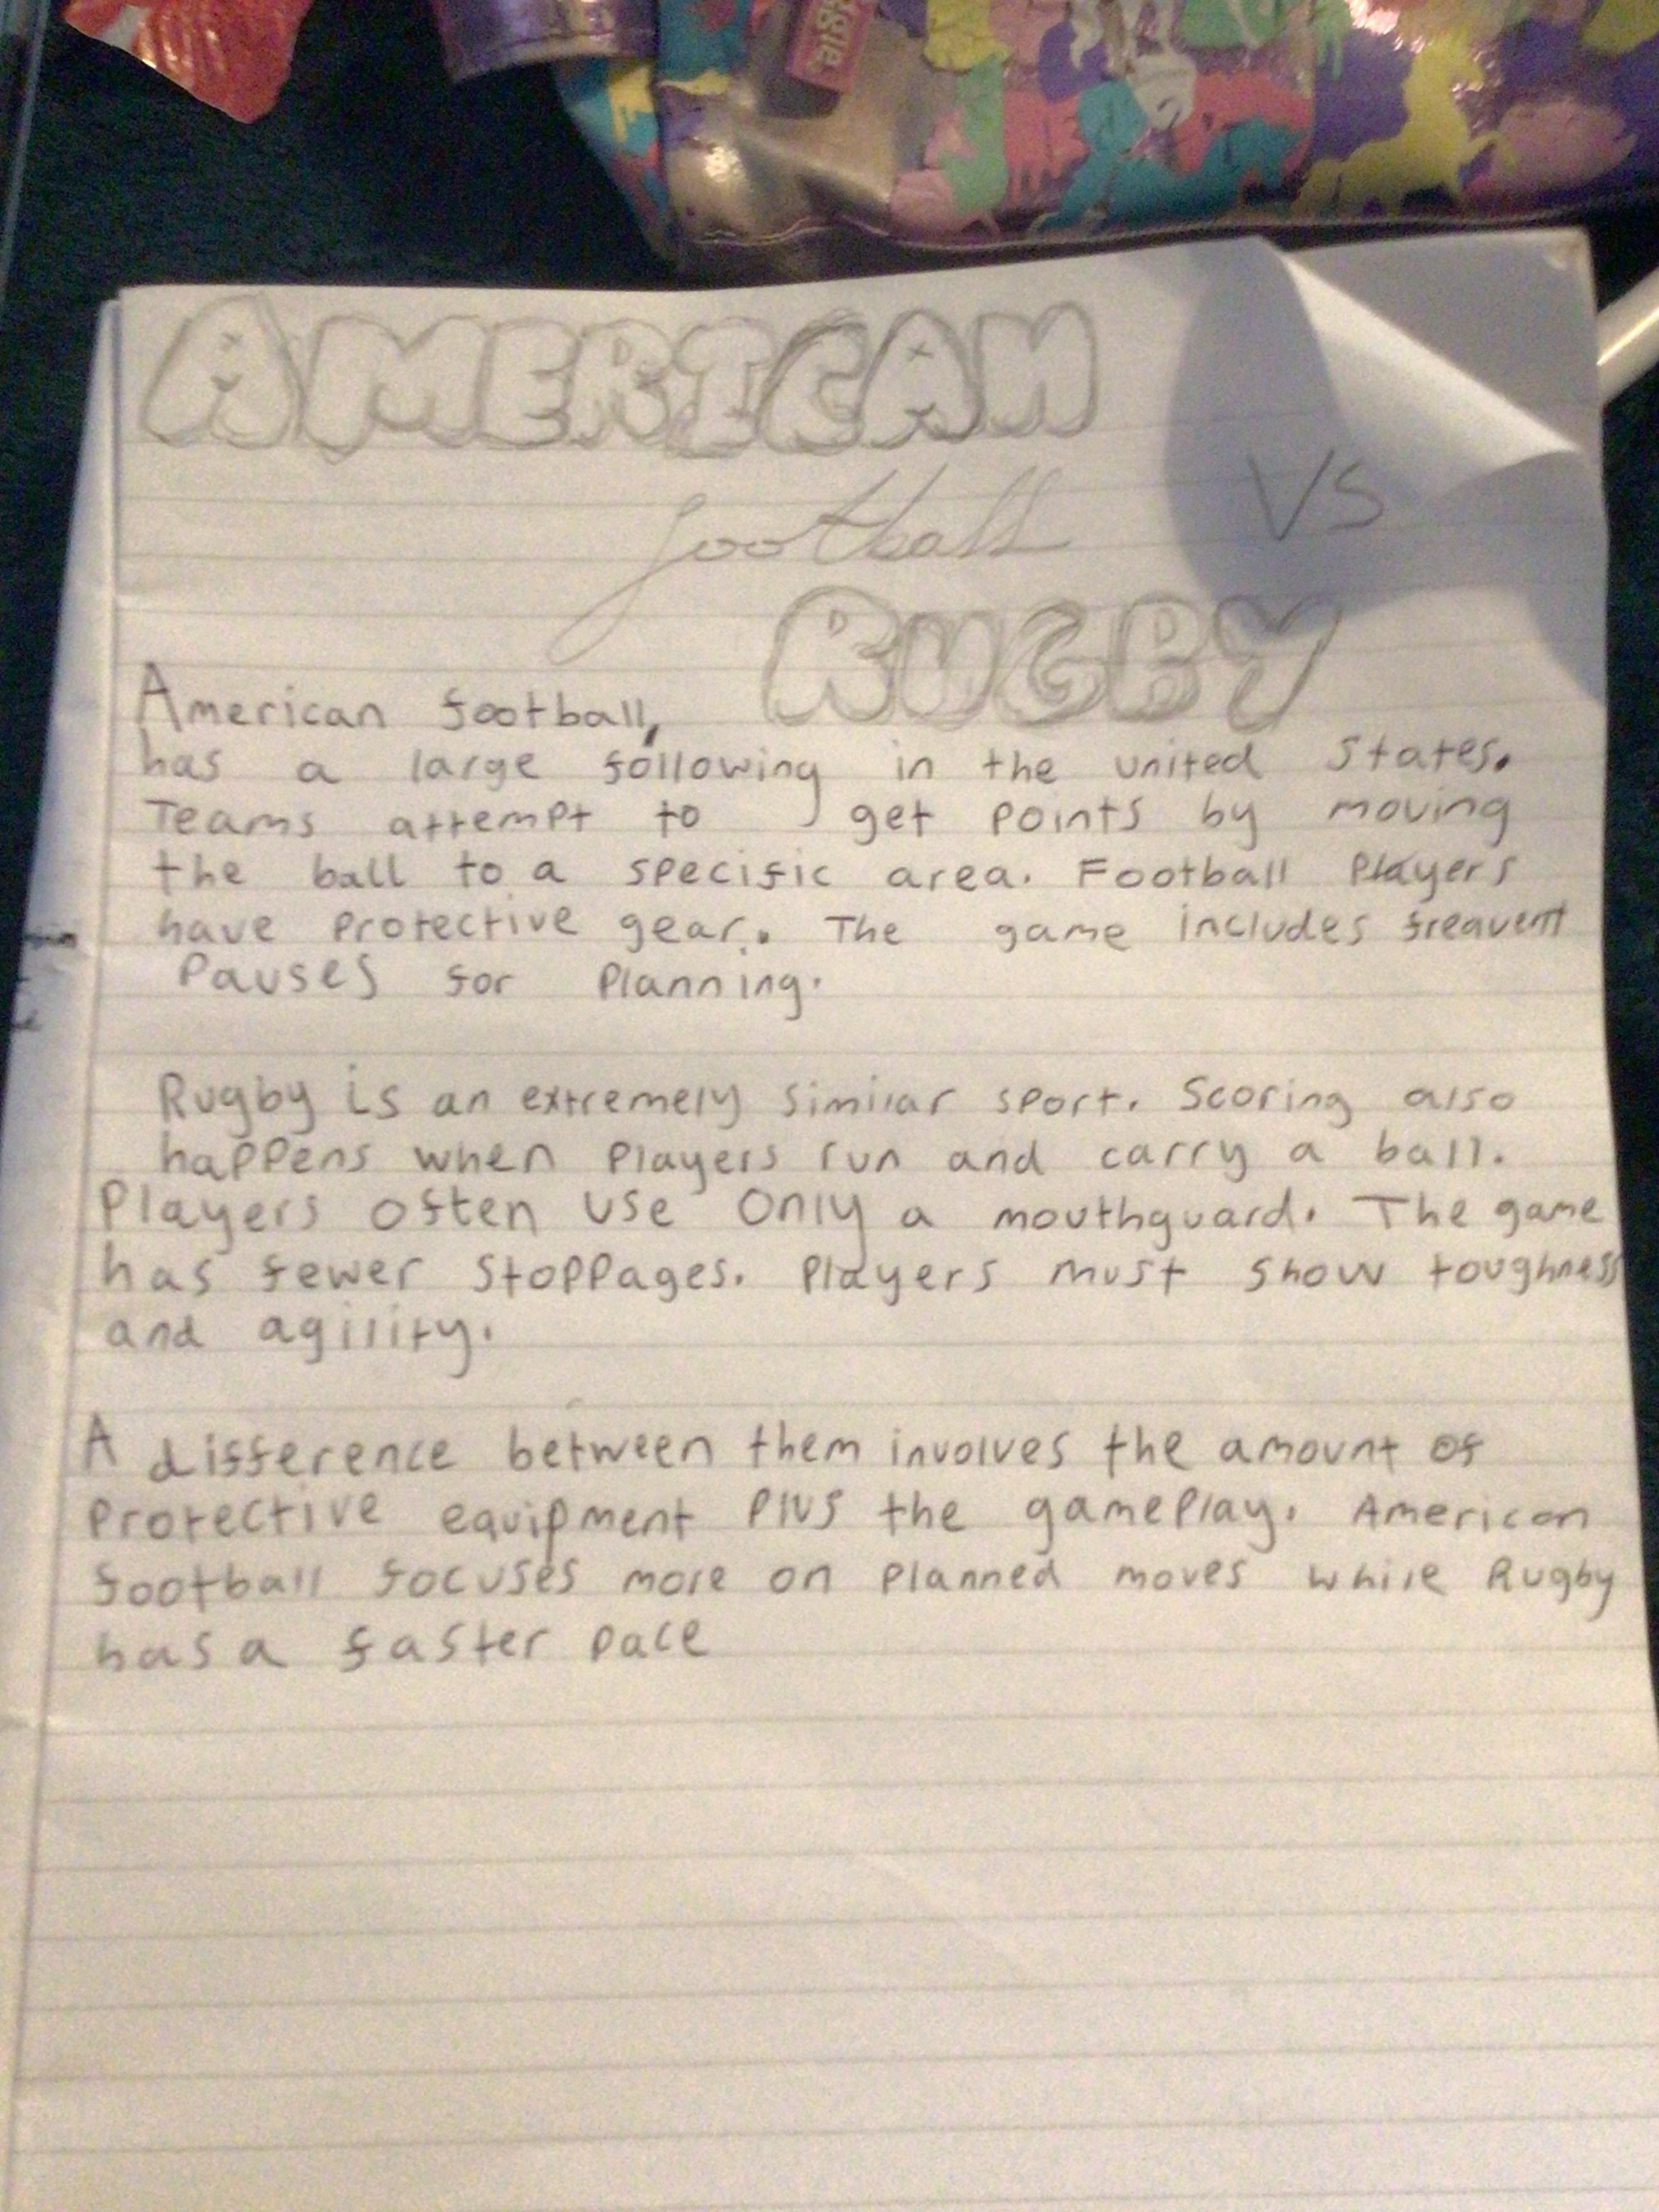 AMERICAN
football VS
RUGBY
American football,
has a large following in the united states.
Teams attempt to get points by moving
the ball to a specific area. Football Players
have protective gear. The game includes frequent
Pauses for Planning.
Rugby is an extremely similar sport. Scoring also
happens when players run and carry a ball.
Players often use only a mouthguard. The game
has fewer stoppages. Players must show toughness
and agility.
A difference between them involves the amount of
protective equipment plus the gameplay. American
football focuses more on planned moves while Rugby
has a faster pace